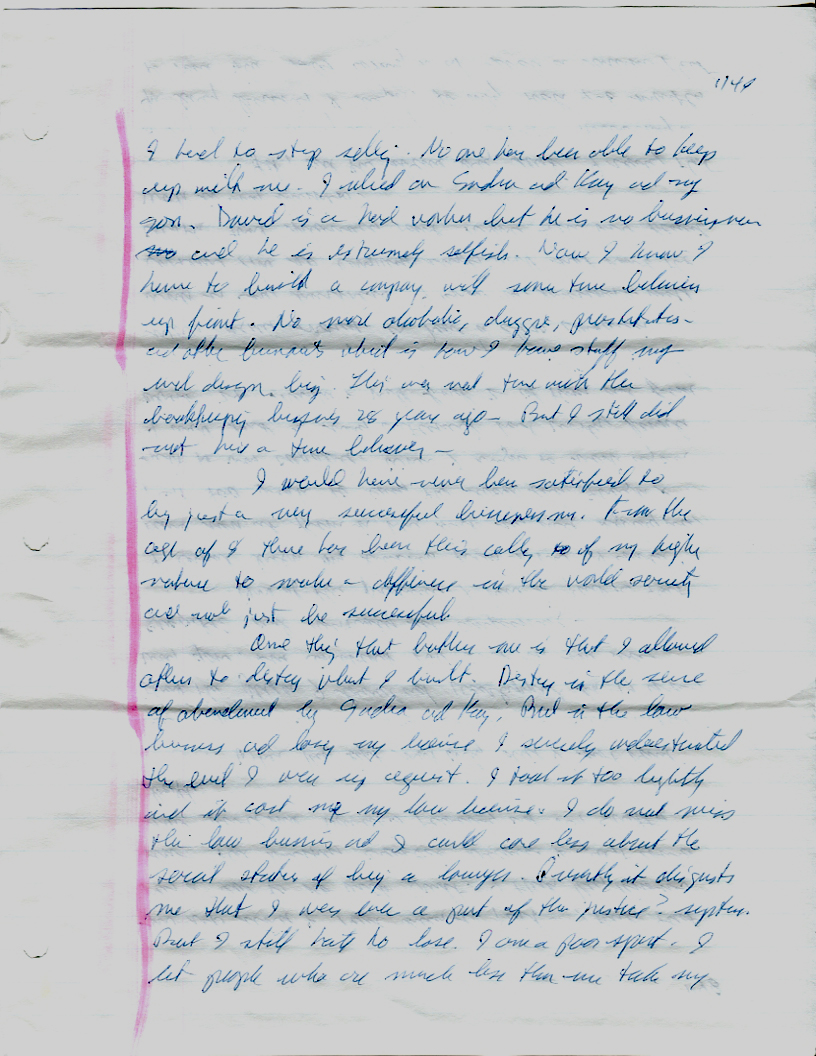 I had to stop selling. No one has been able to keep
up with me. I relied on Sandra and Kay and my
son. David is a hard worker but he is no businessman
and he is extremely selfish. Now I know I
have to build a company with some true believers
up front. No more alcoholic, druggie, prostitutes
and other burnouts which is how I have staff ing
and design, big. This was not true with the
bookkeeping business 28 years ago – But I still did
not have a true believer –
I would have never been satisfied to
be just a very successful businessperson. From the
age of 8 there has been this calling to of my higher
nature to make a difference in the world society
and not just be successful.
One thing that bothers me is that I allowed
others to destroy what I built. Destroy in the sense
of abandonment by Sandra and Kay; But in the law
business and losing my license I severely underestimated
the evil I was up against. I took it too lightly
and it cost me my law license. I do not miss
the law business and I could care less about the
social status of being a lawyer. Quietly it disgusts
me that I was ever a part of the justice? system.
But I still hate to lose. I am a poor sport. I
let people who are much less than me take my